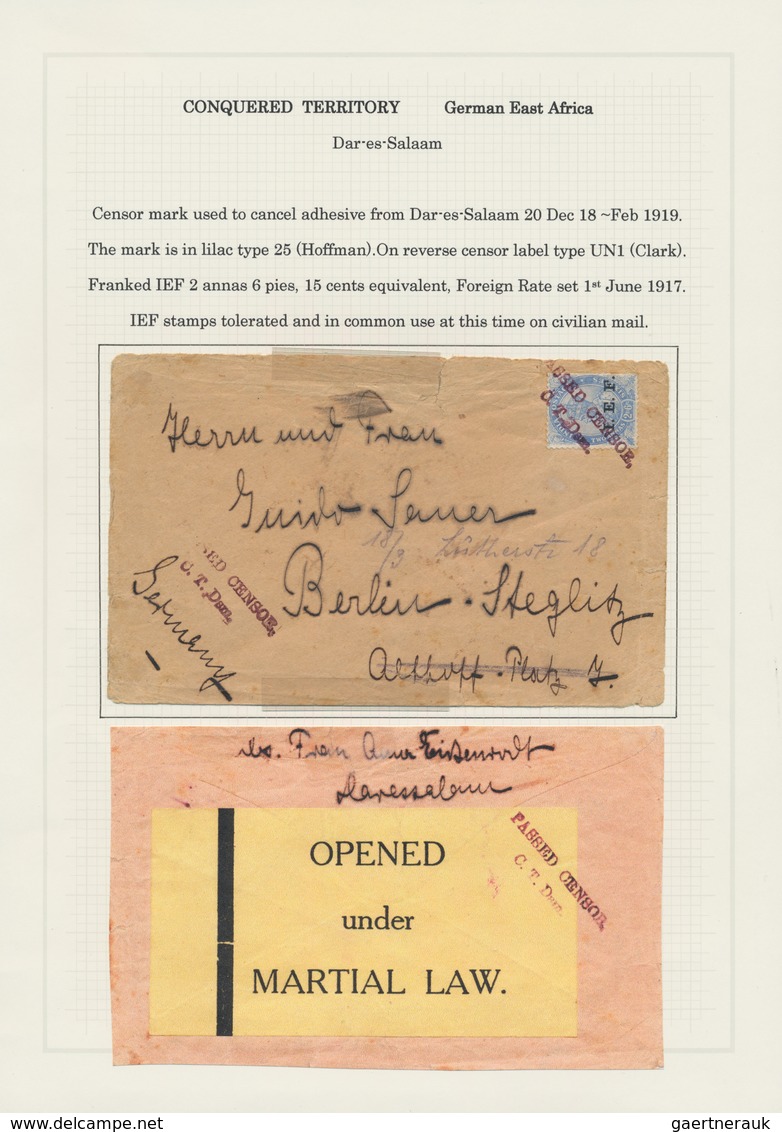 CONQUERED TERRITORY German East Africa
Dar-es-Salaam
Censor mark used to cancel adhesive from Dar-es-Salaam 20 Dec 18 ~Feb 1919.
The mark is in lilac type 25 (Hoffman).On reverse censor label type UN1 (Clark).
Franked IEF 2 annas 6 pies, 15 cents equivalent, Foreign Rate set 1st June 1917.
IEF stamps tolerated and in common use at this time on civilian mail.
I. E. F.
ASSED CENSOR,
C. T. Dsm.
Herrn und Frau
Guido Sauer
18/3 Lutherstr 18
SED CENSOR,
C. T. Dsm.
Berlin-Steglitz
Germany
Althoff-Platz
Frau
Daressalam
PASSED CENSOR,
C. T. Dsm.
OPENED
under
MARTIAL LAW.
Delcampe.net
gaertnerauk